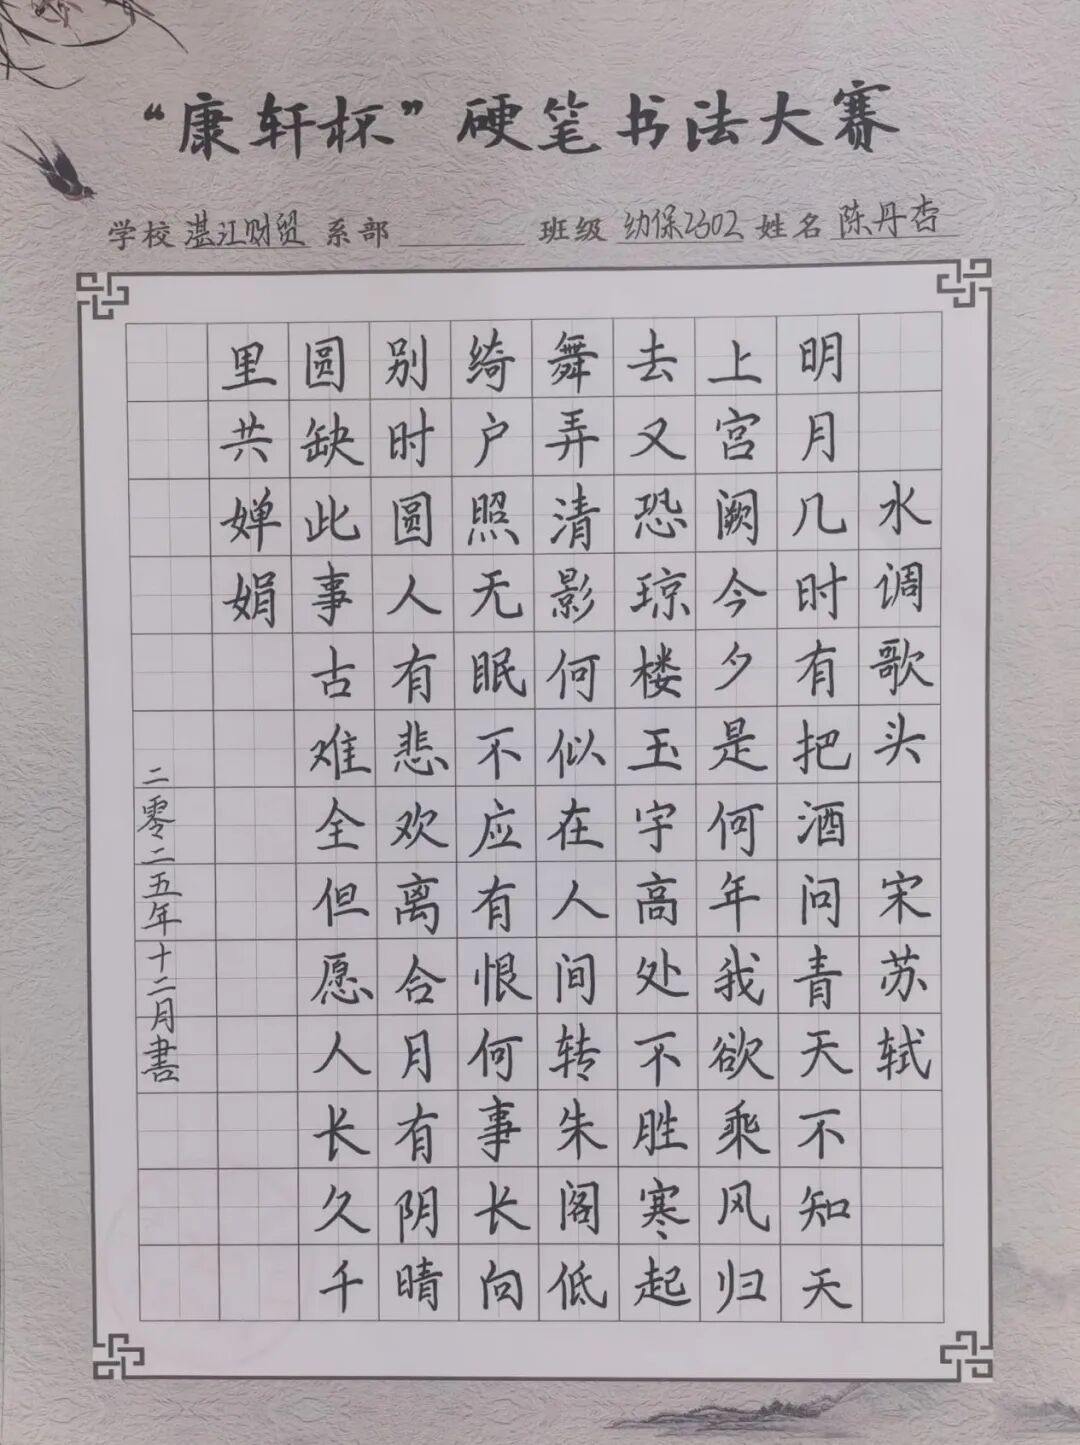 “康轩杯”硬笔书法大赛
学校 湛江财贸 系部 班级 幼保2302 姓名 陈丹杏
水调歌头 宋苏轼
明月几时有把酒问青天不知天
上宫阙今夕是何年我欲乘风归
去又恐琼楼玉宇高处不胜寒起
舞弄清影何似在人间转朱阁低
绮户照无眠不应有恨何事长向
别时圆人有悲欢离合月有阴晴
圆缺此事古难全但愿人长久千
里共婵娟
二零二五年十二月書